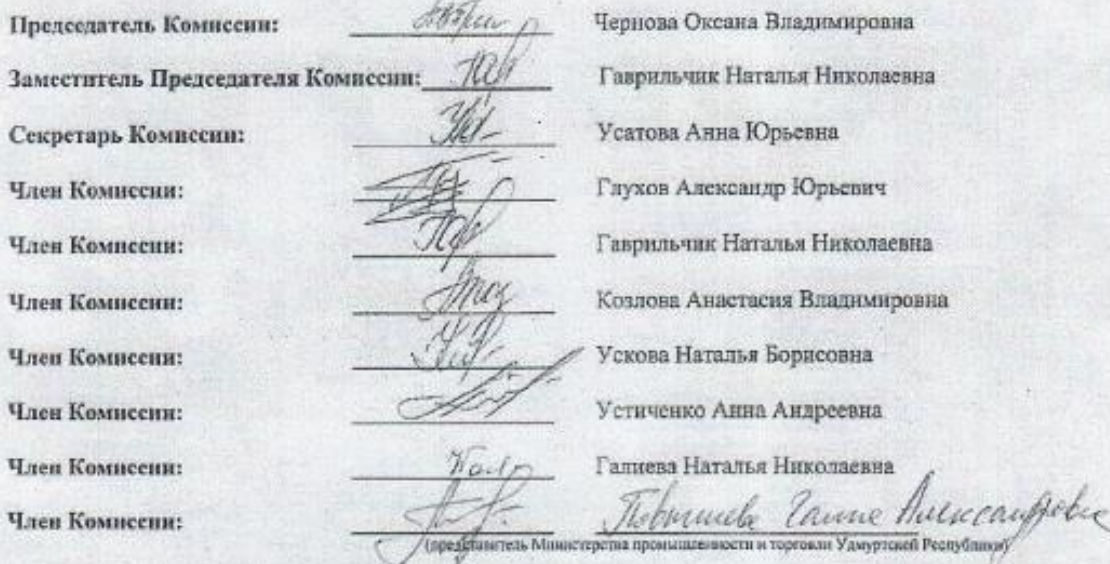 Председатель Комиссии: Чернова Оксана Владимировна
Заместитель Председателя Комиссии: Гаврильчик Наталья Николаевна
Секретарь Комиссии: Усатова Анна Юрьевна
Член Комиссии: Глухов Александр Юрьевич
Член Комиссии: Гаврильчик Наталья Николаевна
Член Комиссии: Козлова Анастасия Владимировна
Член Комиссии: Ускова Наталья Борисовна
Член Комиссии: Устиченко Анна Андреевна
Член Комиссии: Галиева Наталья Николаевна
Член Комиссии:
(представитель Министерства промышленности и торговли Удмуртской Республики)